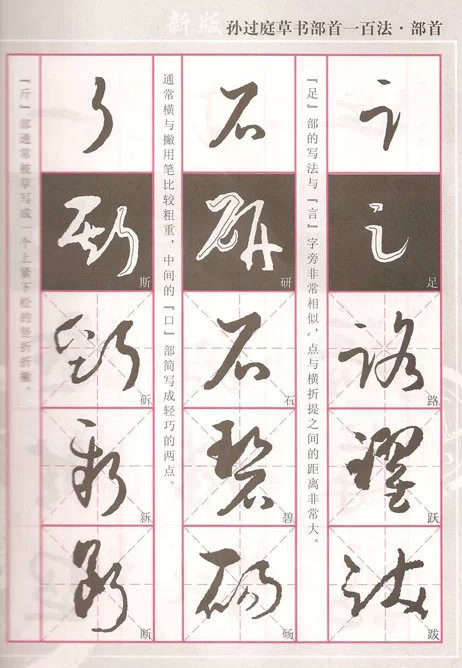 新版 孙过庭草书部首一百法·部首
『足』部的写法与『言』字旁非常相似，点与横折提之间的距离非常大。
足
路
跃
跋
通常横与撇用笔比较粗重，中间的『口』部简写成轻巧的两点。
研
石
碧
砀
『斤』部通常被草写成一个上紧下松的竖折折撇。
斯
斫
新
断